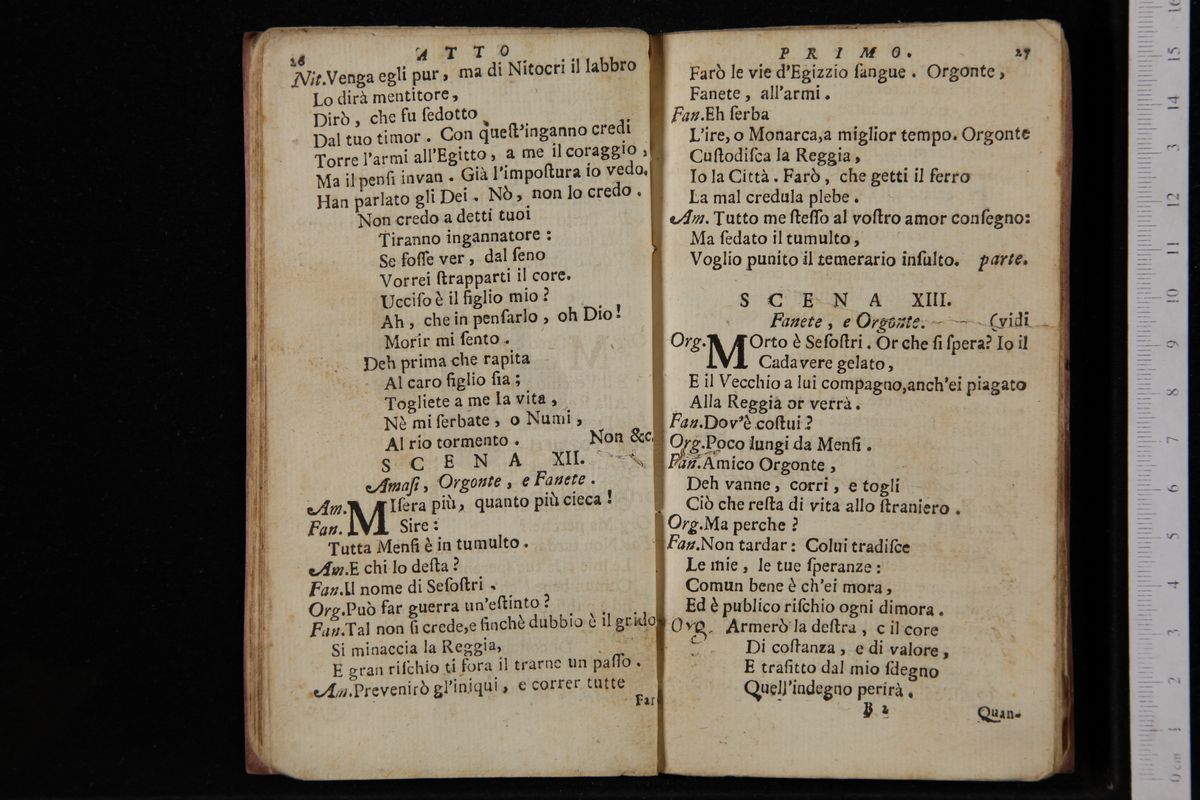 26 ATTO
Nit.Venga egli pur, ma di Nitocri il labbro
Lo dirà mentitore,
Dirò, che fu ſedotto
Dal tuo timor. Con queſt'inganno credi
Torre l'armi all'Egitto, a me il coraggio,
Ma il penſi invan. Già l'impoſtura io vedo.
Han parlato gli Dei. Nò, non lo credo.
Non credo a detti tuoi
Tiranno ingannatore:
Se foſſe ver, dal ſeno
Vorrei ſtrapparti il core.
Ucciſo è il figlio mio?
Ah, che in penſarlo, oh Dio!
Morir mi ſento.
Deh prima che rapita
Al caro figlio ſia;
Togliete a me la vita,
Nè mi ſerbate, o Numi,
Al rio tormento. Non &c.
SCENA XII.
Amaſi, Orgonte, e Fanete.
Am. MIſera più, quanto più cieca!
Fan. Sire:
Tutta Menſi è in tumulto.
Am.E chi lo deſta?
Fan.Il nome di Seſoſtri.
Org.Può far guerra un'eſtinto?
Fan.Tal non ſi crede,e finchè dubbio è il grido
Si minaccia la Reggia,
E gran riſchio ti fora il trarne un paſſo.
Am.Prevenirò gl'iniqui, e correr tutte
Far
PRIMO. 27
Farò le vie d'Egizzio ſangue. Orgonte,
Fanete, all'armi.
Fan.Eh ſerba
L'ire, o Monarca,a miglior tempo. Orgonte
Cuſtodiſca la Reggia,
Io la Città. Farò, che getti il ferro
La mal credula plebe.
Am. Tutto me ſteſſo al voſtro amor conſegno:
Ma ſedato il tumulto,
Voglio punito il temerario inſulto. parte.
SCENA XIII.
Fanete, e Orgonte. (vidi
Org. MOrto è Seſoſtri. Or che ſi ſpera? Io il
Cadavere gelato,
E il Vecchio a lui compagno,anch'ei piagato
Alla Reggia or verrà.
Fan.Dov'è coſtui?
Org.Poco lungi da Menſi.
Fan.Amico Orgonte,
Deh vanne, corri, e togli
Ciò che reſta di vita allo ſtraniero.
Org.Ma perche?
Fan.Non tardar: Colui tradiſce
Le mie, le tue ſperanze:
Comun bene è ch'ei mora,
Ed è publico riſchio ogni dimora.
Org. Armerò la deſtra, e il core
Di coſtanza, e di valore,
E trafitto dal mio ſdegno
Quell'indegno perirà.
B 2 Quan-